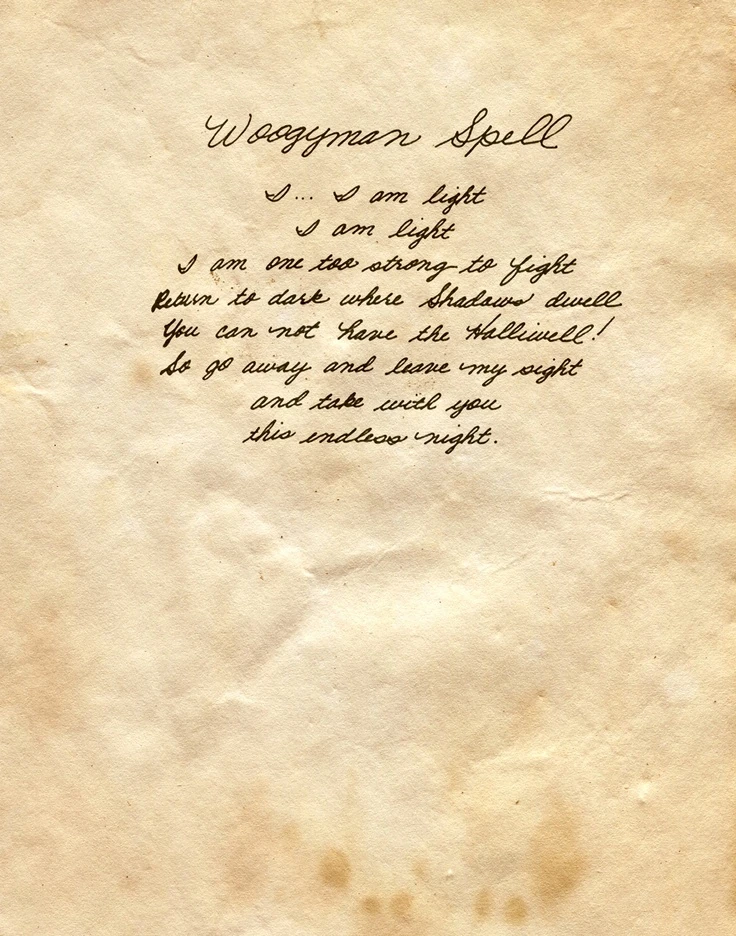 Woogyman Spell
I... I am light
I am light
I am one too strong to fight
Return to dark where Shadows dwell
You can not have the Halliwell!
So go away and leave my sight
and take with you
this endless night.